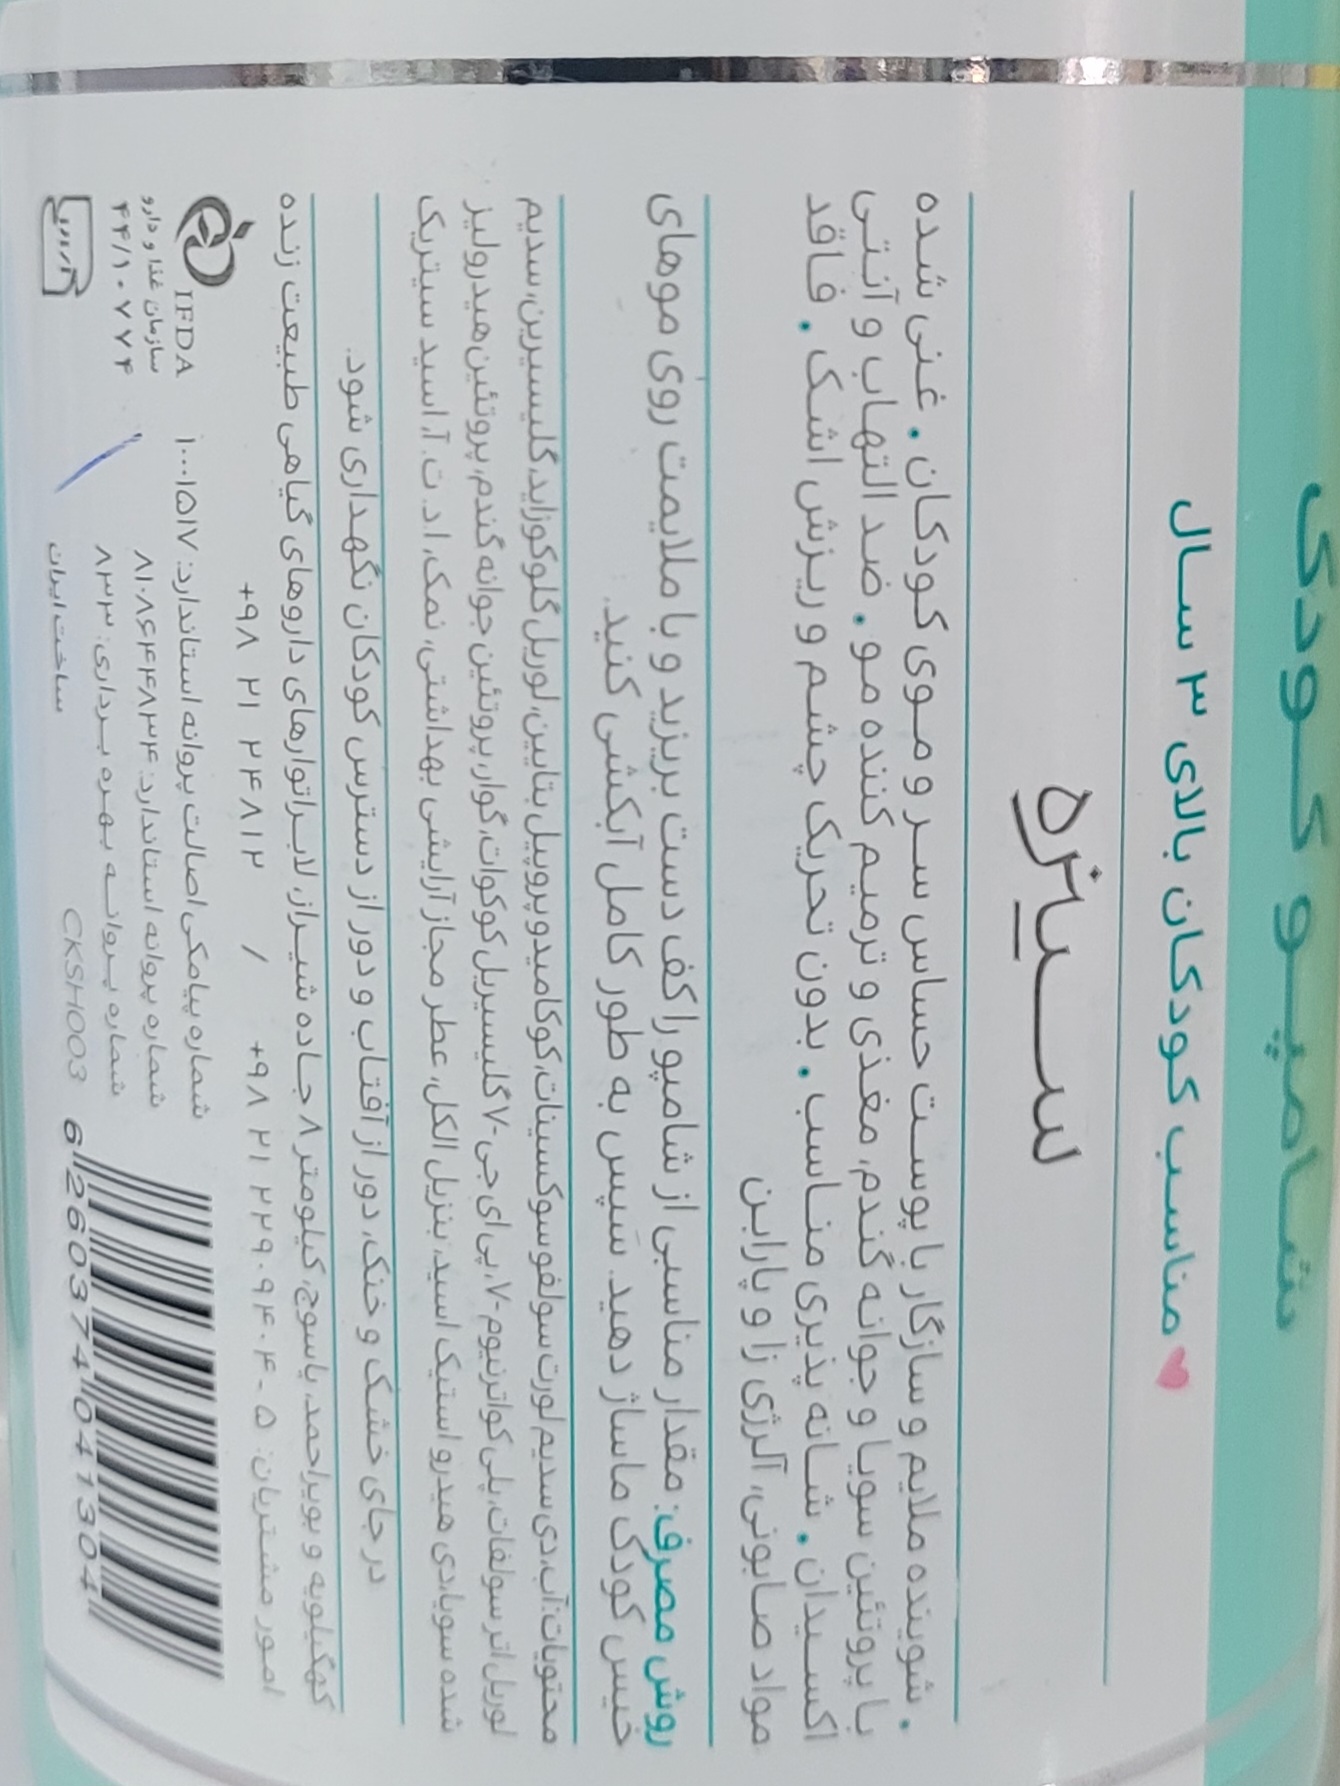 شامپو کودک
مناسب کودکان بالای ۳ سال
سـبـزه
• شوینده ملایم و سازگار با پوست حساس سر و موی کودکان • غنی شده
با پروتئین سویا و جوانه گندم، مغذی و ترمیم کننده مو • ضد التهاب و آنتی
اکسیدان • شانه پذیری مناسب • بدون تحریک چشم و ریزش اشک • فاقد
مواد صابونی، آلرژی زا و پارابن
روش مصرف: مقدار مناسبی از شامپو را کف دست بریزید و با ملایمت روی موهای
خیس کودک ماساژ دهید. سپس به طور کامل آبکشی کنید.
محتویات: آب، دی سدیم لورت سولفوسوکسینات، کوکامیدوپروپیل بتایین، لوریل گلوکوزاید، گلیسیرین، سدیم
لوریل اتر سولفات، پلی کواترنیوم-۷، پی ای جی-۷ گلیسیریل کوکوات، گوار، پروتئین جوانه گندم، پروتئین هیدرولیز
شده سویا، دی هیدرو استیک اسید، بنزیل الکل، عطر مجاز آرایشی بهداشتی، نمک، ا.د.ت.آ، اسید سیتریک
در جای خشک و خنک، دور از آفتاب و دور از دسترس کودکان نگهداری شود.
کهگیلویه و بویراحمد، یاسوج، کیلومتر ۸ جاده شیراز، لابراتوارهای داروهای گیاهی طبیعت زنده
امور مشتریان: ۵-۲۲۹۰۹۴۰۴ ۲۱ ۹۸+ / ۲۴۸۱۲ ۲۱ ۹۸+
شماره پیامکی اصالت پروانه استاندارد: ۱۰۰۰۱۵۱۷
شماره پروانه استاندارد: ۸۱۰۸۶۴۴۸۳۴
شماره پروانه بهره برداری: ۸۳۳
ساخت ایران
CKSH003
IFDA
سازمان غذا و دارو
۴۴/۱۰۷۷۴
6 260374 041304